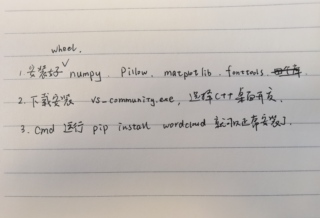 wheel.
1. 安装好 numpy. Pillow. matplotlib. fonttools.
2. 下载安装 vs-community.exe, 选择C++桌面开发.
3. cmd 运行 pip install wordcloud 就可以正常安装了.